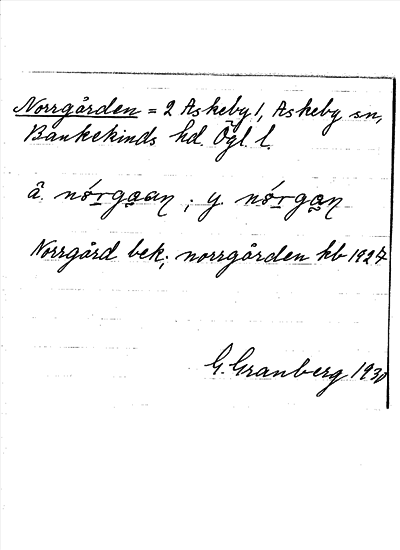 Norrgården = 2 Askeby 1, Askeby sn,
Bankekinds hd. Ögl. l.
å. nórgaan ; y. nórgan
Norrgård bek; norrgården kb 1927
G. Granberg 1930